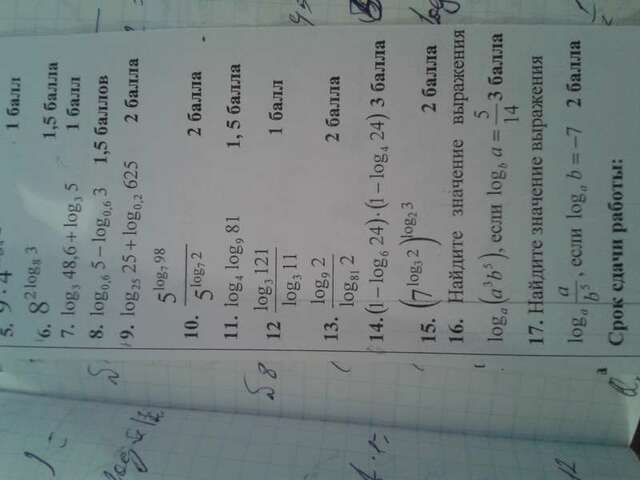 1 балл
6. 8^{2log_8 3} 1,5 балла
7. log_3 48,6 + log_3 5 1 балл
8. log_{0,6} 5 − log_{0,6} 3 1,5 баллов
9. log_{25} 25 + log_{0,2} 625 2 балла
10. 5^{log_7 98} / 5^{log_7 2} 2 балла
11. log_4 log_9 81 1, 5 балла
12 log_3 121 / log_3 11 1 балл
13. log_9 2 / log_{81} 2 2 балла
14. (1 − log_6 24) · (1 − log_4 24) 3 балла
15. (7^{log_3 2})^{log_2 3} 2 балла
16. Найдите значение выражения
log_a (a^3 b^5), если log_b a = 5/14 3 балла
17. Найдите значение выражения
log_a a/b^5, если log_a b = −7 2 балла
Срок сдачи работы: